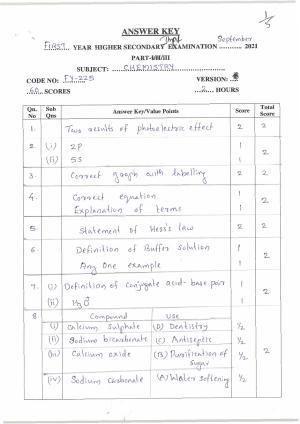 ANSWER KEY
FIRST YEAR HIGHER SECONDARY EXAMINATION September 2021
PART-I/II/III
SUBJECT: CHEMISTRY
CODE NO: FY-225 VERSION:
60 SCORES 2 HOURS
Qn. No Sub Qns Answer Key/Value Points Score Total Score
1. Two results of photoelectric effect 2 2
2. (i) 2P 1
(ii) 5S 1 2
3. Correct graph with labelling 2 2
4. Correct equation 1
Explanation of terms 1 2
5. Statement of Hess's law 2 2
6. Definition of Buffer solution 1
Any One example 1 2
7. (i) Definition of conjugate acid-base pair 1
(ii) H3O+ 1 2
8. Compound Use
(i) Calcium sulphate (D) Dentistry ½
(ii) Sodium bicarbonate (C) Antiseptic ½
(iii) Calcium oxide (B) Purification of Sugar ½ 2
(iv) Sodium carbonate (A) Water softening ½